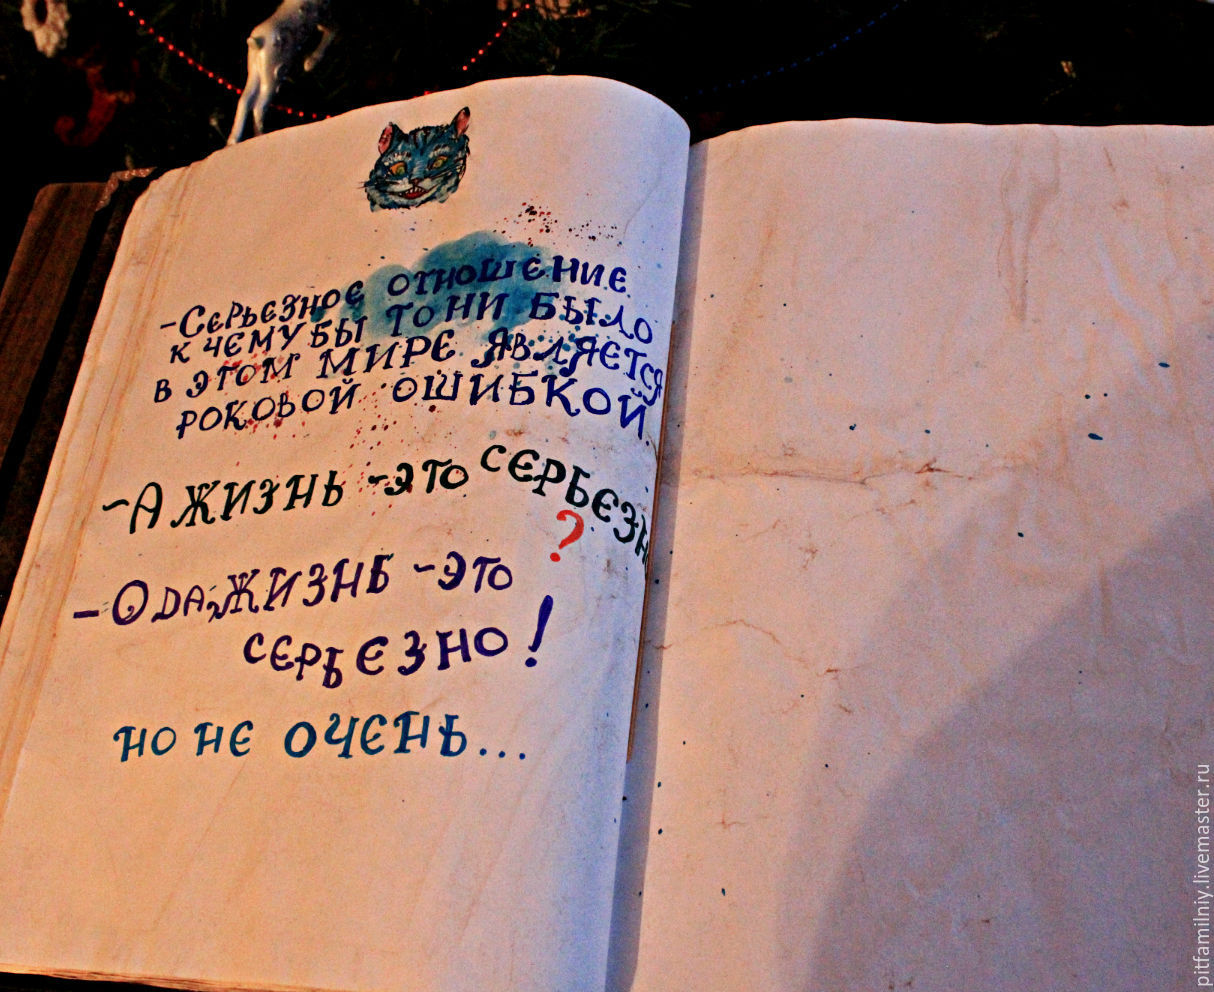 -Серьезное отношение
к чему бы то ни было
в этом мире является
роковой ошибкой.
-А жизнь -это серьезн
?
-О да, жизнь -это
серьезно!
но не очень...
pitfamilniy.livemaster.ru